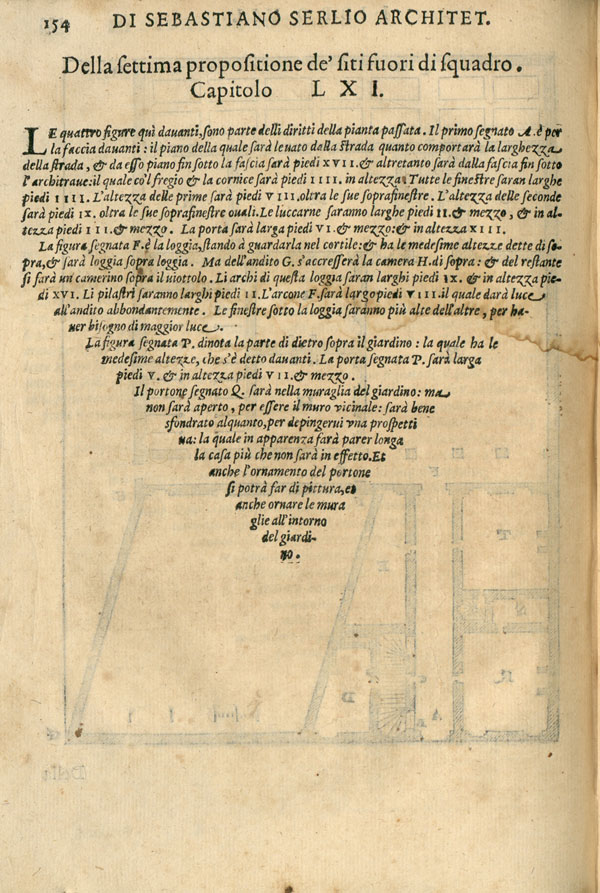 154 DI SEBASTIANO SERLIO ARCHITET.
Della settima propositione de' siti fuori di squadro.
Capitolo LXI.
LE quattro figure quì davanti, sono parte delli diritti della pianta passata. Il primo segnato A. è per
la faccia davanti: il piano della quale sarà levato dalla strada quanto comporterà la larghezza
della strada, & da esso piano fin sotto la fascia sarà piedi XVII. & altretanto sarà dalla fascia fin sotto
l'architrave: il quale co'l fregio & la cornice sarà piedi IIII. in altezza. Tutte le finestre saran larghe
piedi IIII. L'altezza delle prime sarà piedi VIII. oltra le sue soprafinestre. L'altezza delle seconde
sarà piedi IX. oltra le sue soprafinestre ovali. Le luccarne saranno larghe piedi II. & mezzo, & in al-
tezza piedi III. & mezzo. La porta sarà larga piedi VI. & mezzo: & in altezza XIII.
La figura segnata F. è la loggia, stando à guardarla nel cortile: & ha le medesime altezze dette di so-
pra, & sarà loggia sopra loggia. Ma dell'andito G. s'accresserà la camera H. di sopra: & del restante
si sarà un camerino sopra il viottolo. Li archi di questa loggia saran larghi piedi IX. & in altezza pie-
di XVI. Li pilastri saranno larghi piedi II. L'arcone F. sarà largo piedi VIII. il quale darà luce
all'andito abbondantemente. Le finestre sotto la loggia saranno più alte dell'altre, per ha-
uer bisogno di maggior luce.
La figura segnata P. dinota la parte di dietro sopra il giardino: la quale ha le
medesime altezze, che s'è detto davanti. La porta segnata P. sarà larga
piedi V. & in altezza piedi VII. & mezzo.
Il portone segnato Q. sarà nella muraglia del giardino: ma
non sarà aperto, per essere il muro vicinale: sarà bene
sfondrato alquanto, per depingerui vna prospetti
ua: la quale in apparenza farà parer longa
la casa più che non sarà in effetto. Et
anche l'ornamento del portone
si potrà far di pittura, et
anche ornare le mura
glie all'intorno
del giardi-
no.